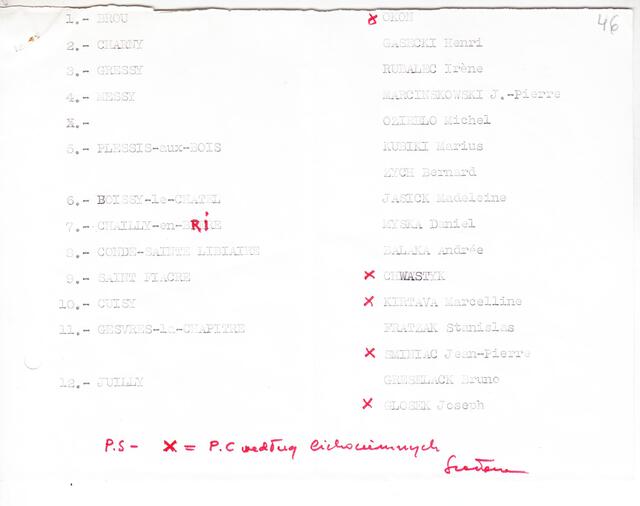 46
1.- BROU OKON
2.- CHARNY GASECKI Henri
3.- GRESSY RUBALEC Irène
4.- MESSY MARCINSKOWSKI J.-Pierre
X.- OZIEBLO Michel
5.- PLESSIS-aux-BOIS KUBIKI Marius
ZYCH Bernard
6.- BOISSY-le-CHATEL JASICK Madeleine
7.- CHAILLY-en-BRIE MYSKA Daniel
8.- CONDE-SAINTE LIBIAIRE BALAKA Andrée
9.- SAINT FIACRE X CHWASTYK
10.- CUISY X KIRTAVA Marcelline
11.- GESVRES-le-CHAPITRE FRATZAK Stanislas
X SMINIAC Jean-Pierre
12.- JUILLY GRESELACK Bruno
X GLOSEK Joseph
P.S - X = P.C według Cichociemnych